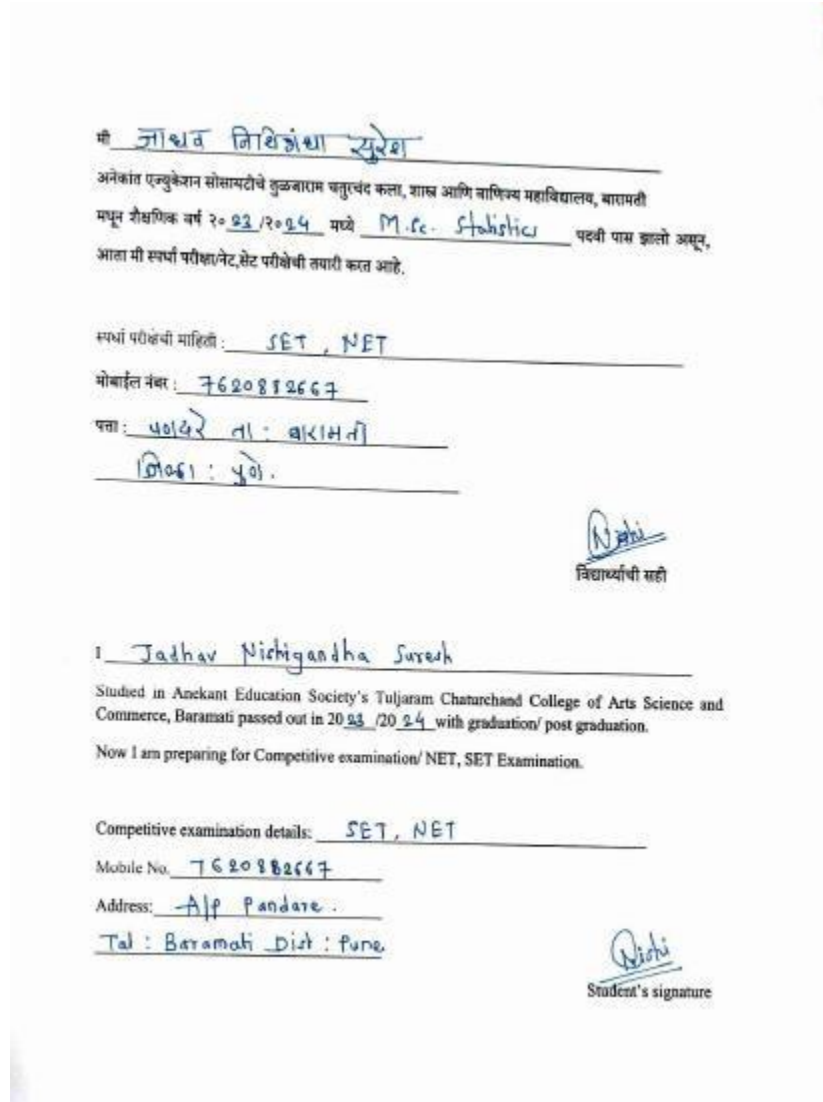 मी जाधव निशिगंधा सुरेश
अनेकांत एज्युकेशन सोसायटीचे तुळजाराम चतुरचंद कला, शास्त्र आणि वाणिज्य महाविद्यालय, बारामती
मधून शैक्षणिक वर्ष २० 23 /२० 24 मध्ये M.Sc. Statistics पदवी पास झालो असून,
आता मी स्पर्धा परीक्षा/नेट,सेट परीक्षेची तयारी करत आहे.
स्पर्धा परीक्षेची माहिती : SET, NET
मोबाईल नंबर : 7620882667
पत्ता : पणदरे ता : बारामती
जिल्हा : पुणे.
Nishi
विद्यार्थ्याची सही
I Jadhav Nishigandha Suresh
Studied in Anekant Education Society's Tuljaram Chaturchand College of Arts Science and
Commerce, Baramati passed out in 20 23 /20 24 with graduation/ post graduation.
Now I am preparing for Competitive examination/ NET, SET Examination.
Competitive examination details: SET, NET
Mobile No. 7620882667
Address: A/P Pandare.
Tal : Baramati Dist : Pune
Nishi
Student's signature